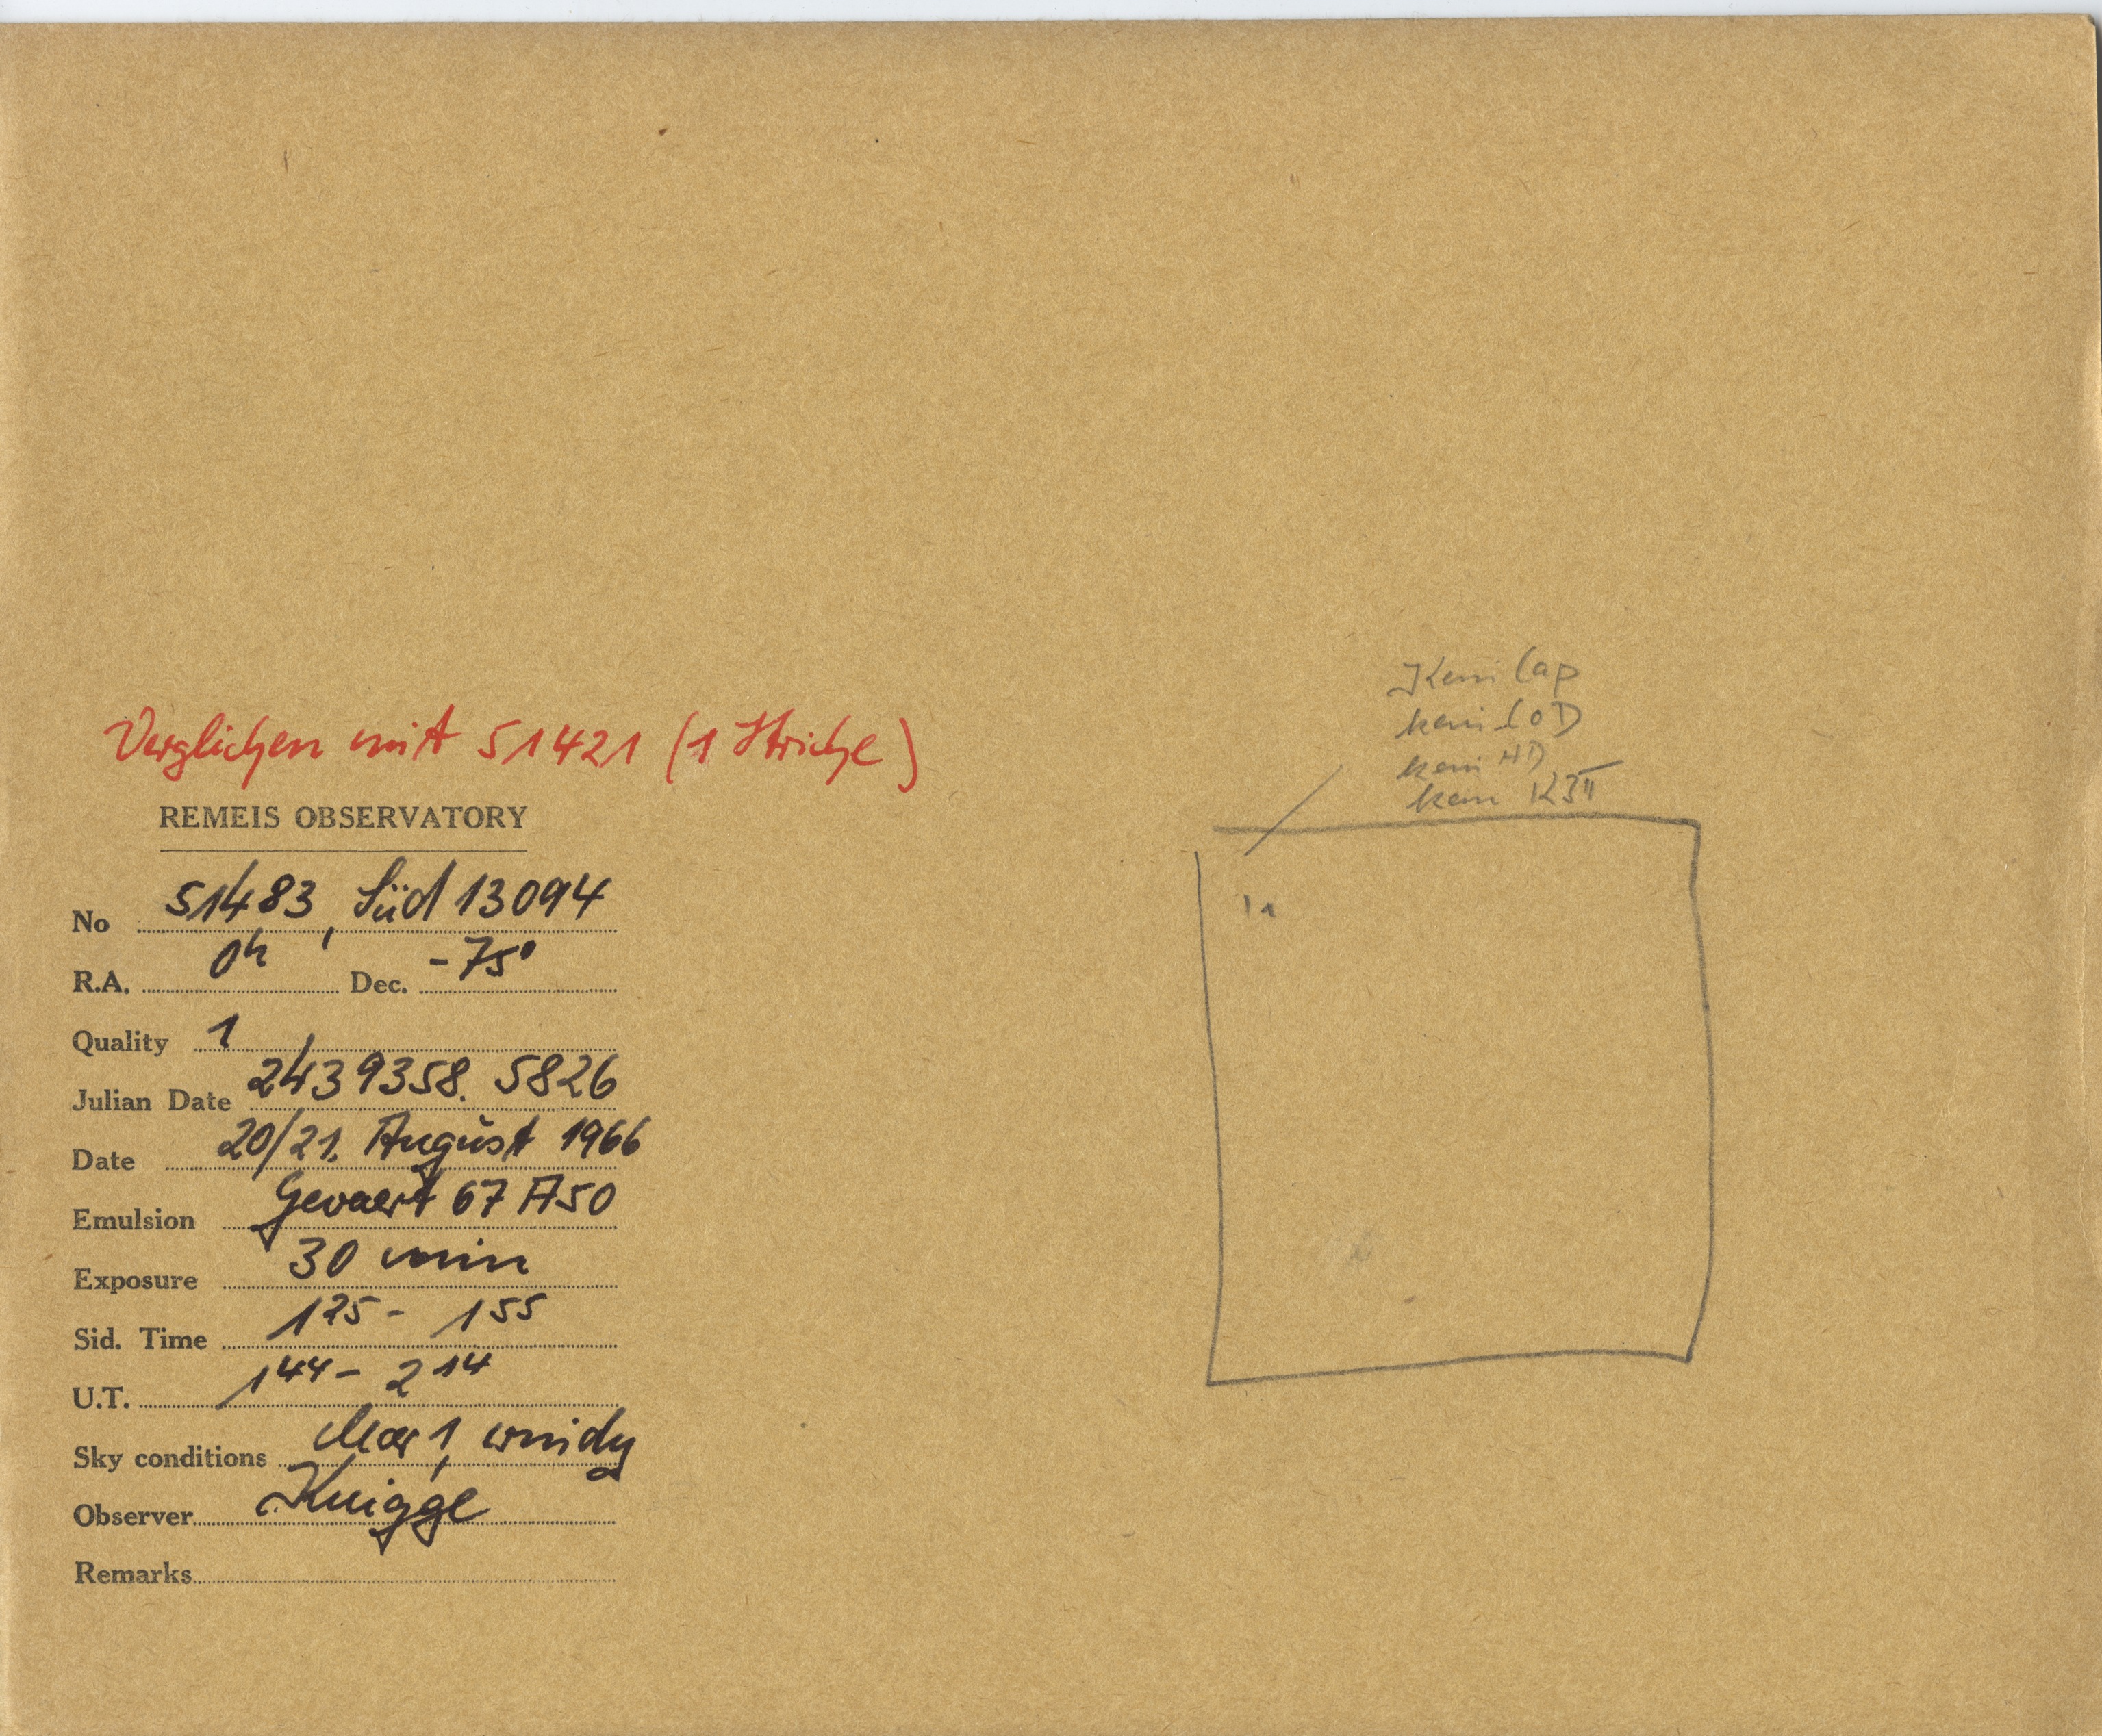 Kein Cap
kein CoD
kein HD
kein K3Π
Verglichen mit 51421 (1 Striche)
REMEIS OBSERVATORY
No 51483, Süd 13094
R.A. 0h Dec. -75°
Quality 1
Julian Date 2439358.5826
Date 20/21. August 1966
Emulsion Gevaert 67 A50
Exposure 30 min
Sid. Time 1 25 - 1 55
U.T. 1 44 - 2 14
Sky conditions clear 1, windy
Observer Knigge
Remarks